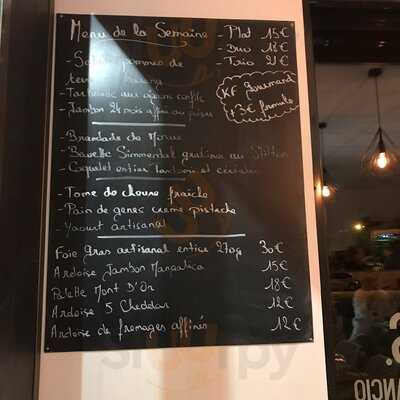 Menu de la Semaine - Plat 15€
- Duo 18€
- Trio 21€
- Salade pommes de
terre hareng
- Tartelette aux oignons confits
- Jambon 24 mois affiné au poivre
KF Gourmand
+3€ formule
- Brandade de Morue
- Bavette Simmental gratinée au Stilton
- Coquelet entier
- Tome de chèvre fraîche
- Pain de gènes crème pistache
- Yaourt artisanal
Foie gras artisanal entier 270g 30€
Ardoise Jambon Mangalica 15€
Palette Mont D'Or 18€
Ardoise 5 Cheddar 12€
Ardoise de fromages affinés 12€